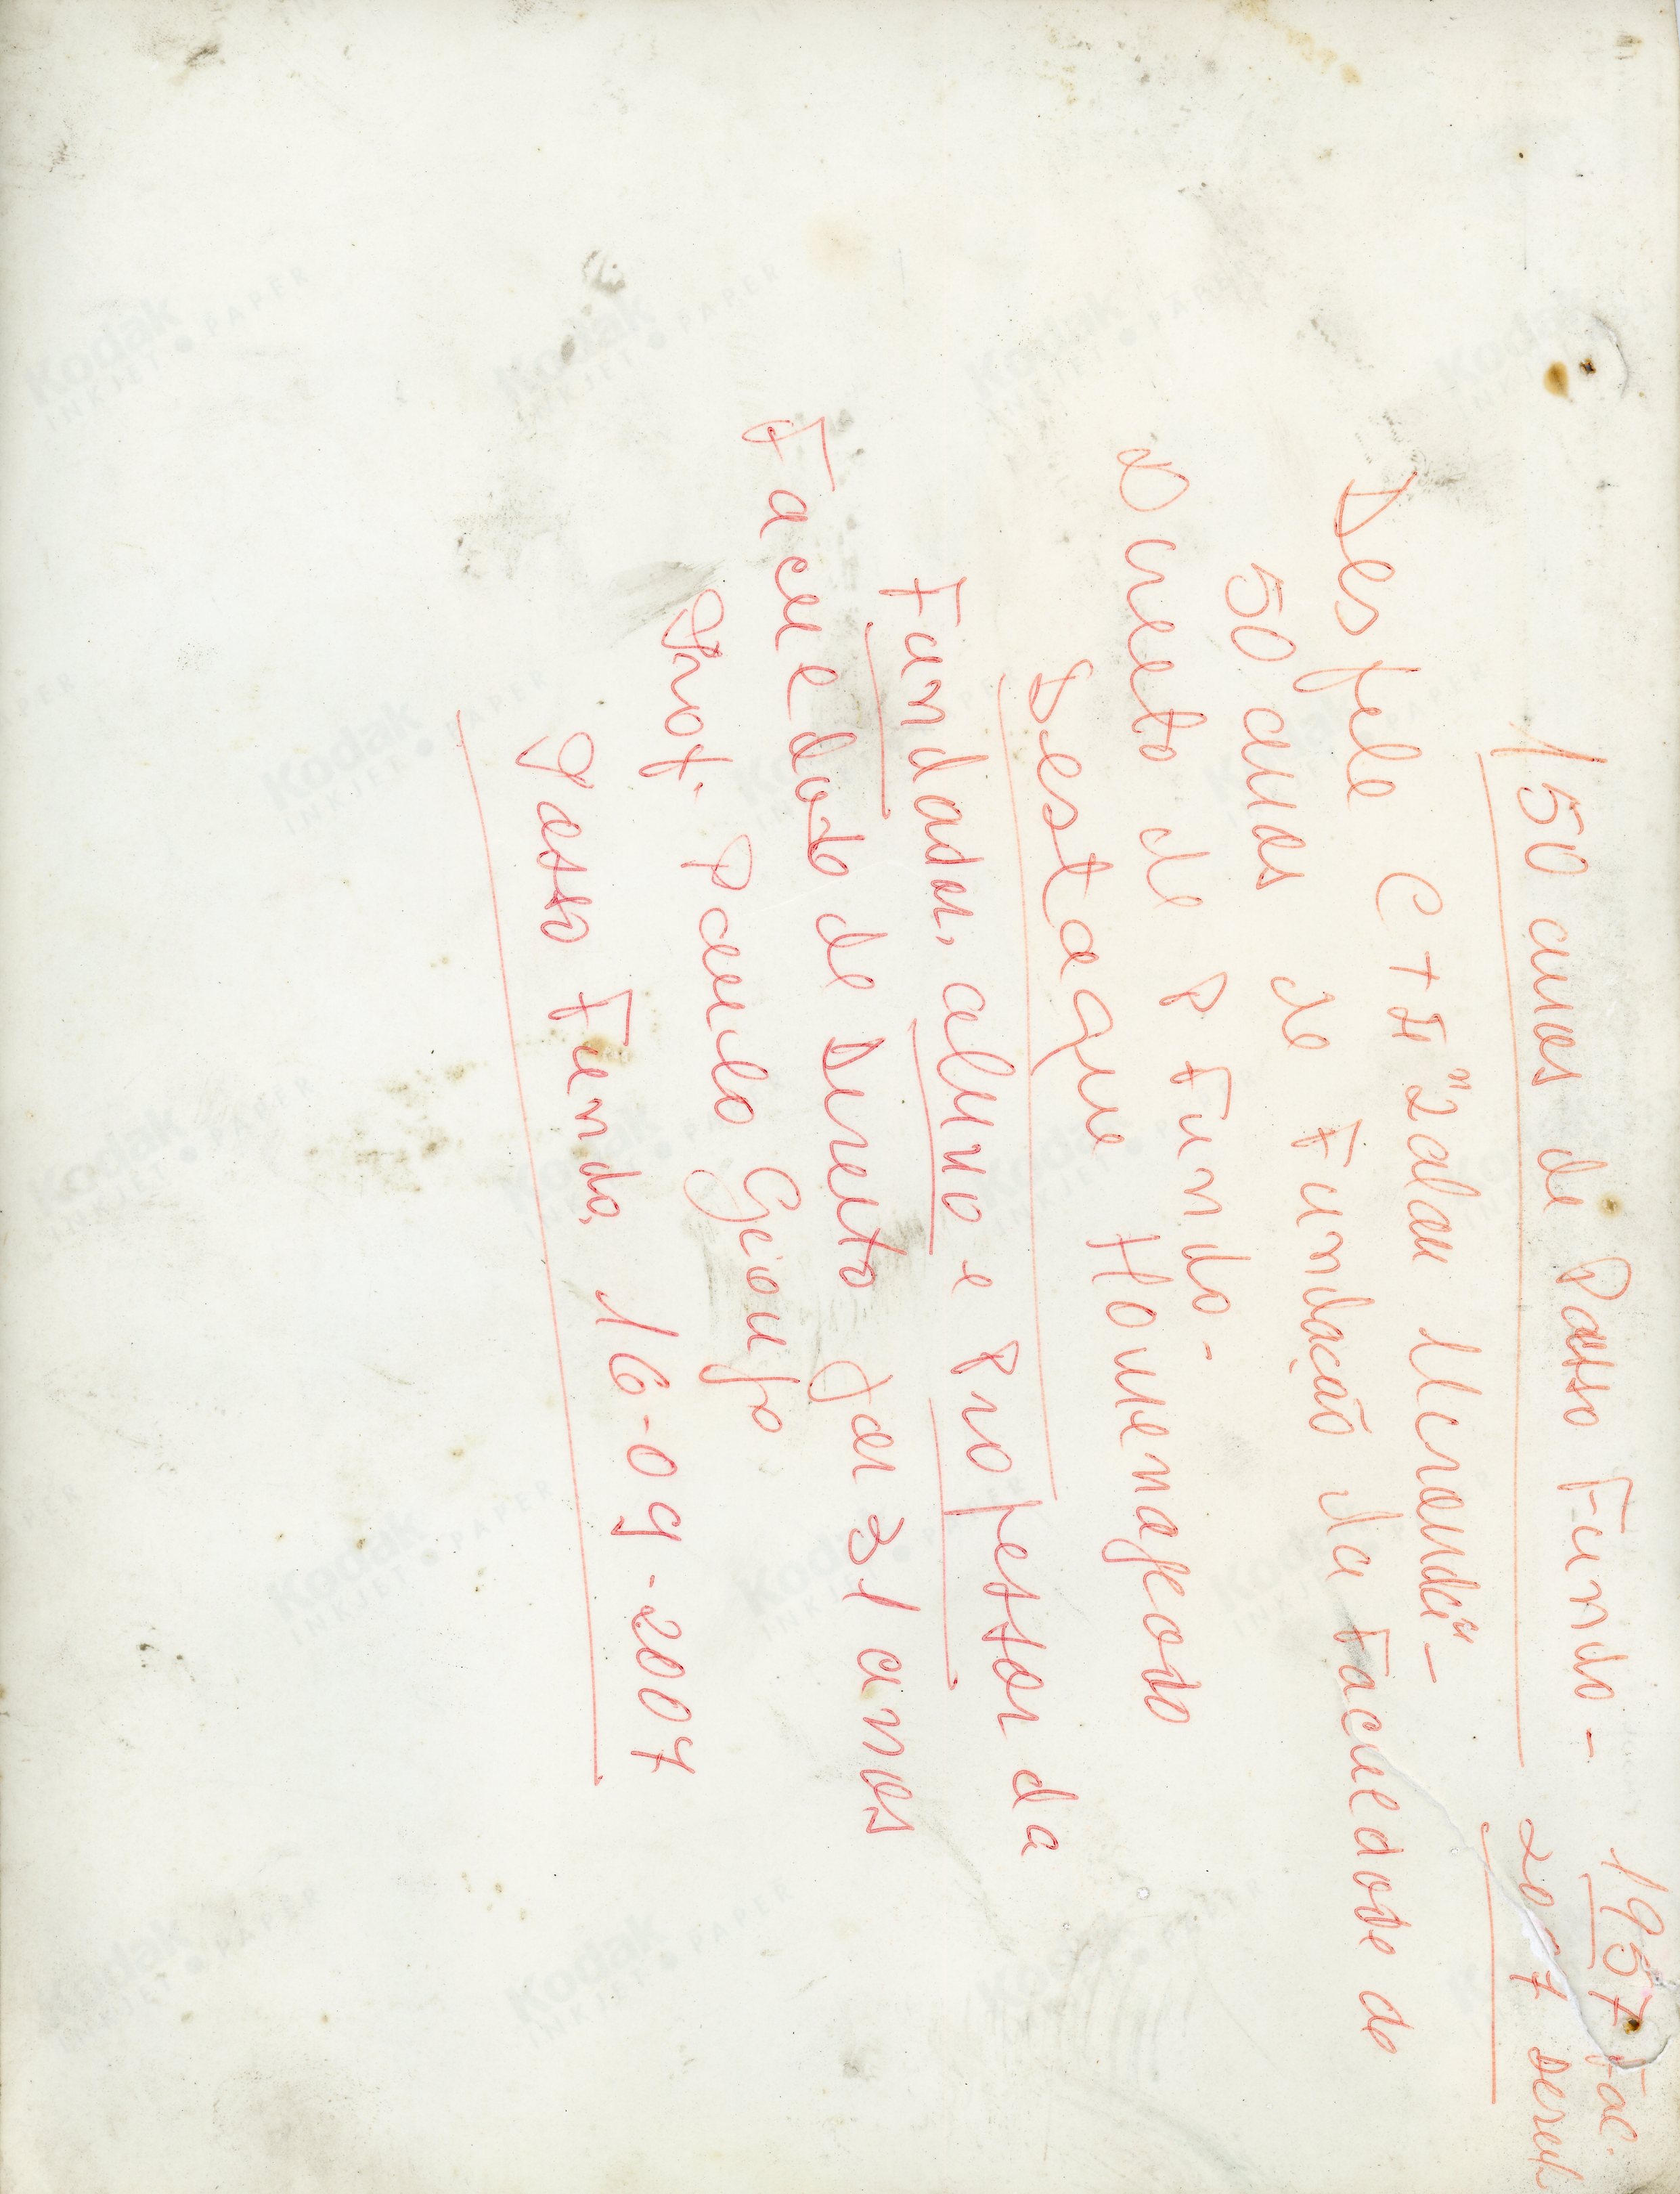 150 anos de Passo Fundo -
1957 Fac.
2007 Direit
Desfile CTG "Lalau Miranda" -
50 anos de Fundação da Faculdade de
Direito de P Fundo -
Destaque Homenageado
Fundador, aluno e Professor da
Faculdade de Direito por 31 anos
Prof. Paulo Giongo
Passo Fundo, 16-09-2007
Kodak
INKJET PAPER